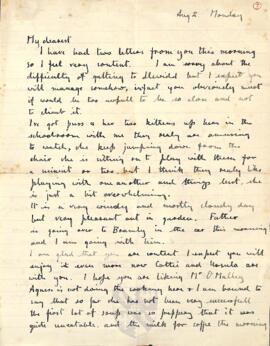 Aug 2. Monday
My dearest
I have had two letters from you this morning
so I feel very content. I am sorry about the
difficulty of getting to but I expect you
will manage somehow, in fact you obviously must
it would be too awful to be so close and not
to climb it.
I've got puss & her two kittens up here in the
schoolroom with me they really are amusing
to watch, she keep jumping down from the
chair she is sitting on to play with them for
a minute or two but I think they really like
playing with one another and things best, she
is just a bit overwhelming.
It is a very windy and mostly cloudy day
but very pleasant out in garden. Father
is going over to Bramley in the car this morning
and I am going with him.
I am glad that you are content I expect you will
enjoy it even more now and Ursula are
with you. I hope you are liking Mr O'Malley
Agnes is not doing the cooking here & I am bound to
say that so far she has not been very successfull
the first lot of soup was so peppery that it was
quite uneatable, and the milk for coffee the morning